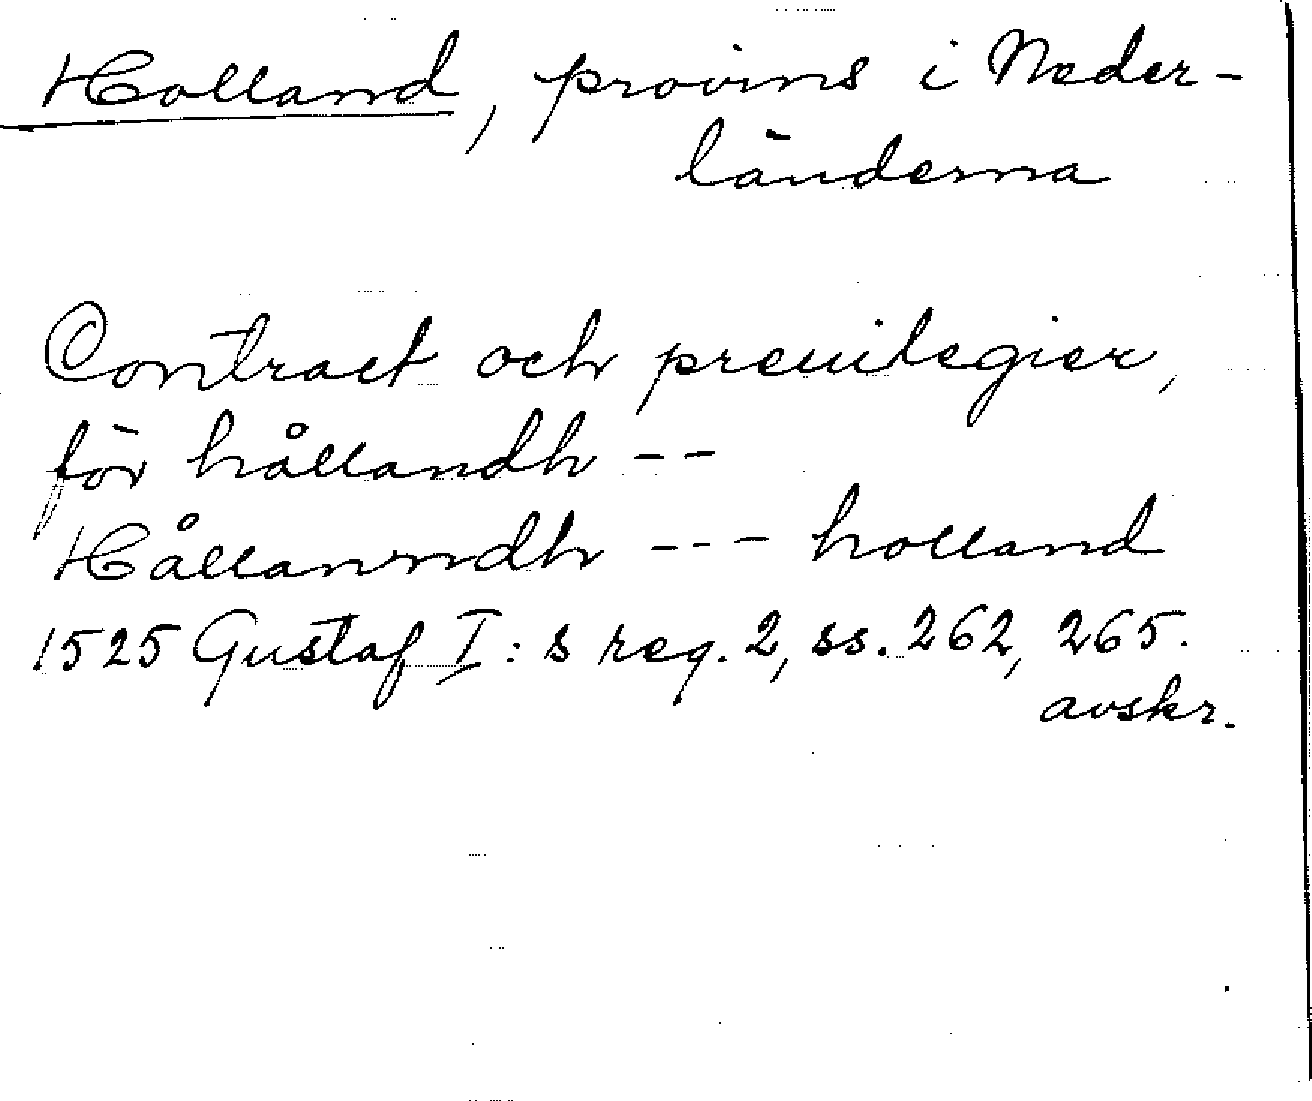 Holland, provins i Neder-
länderna
Contract och preuilegier,
för hållandh --
Hållanndh --- holland
1525 Gustaf I:s reg. 2, ss. 262, 265.
avskr.